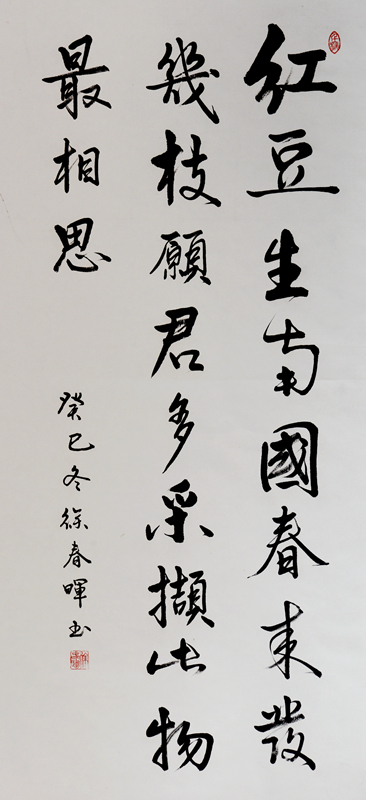 紅豆生南國春来發
幾枝願君多采擷此物
最相思
癸巳冬徐春暉書